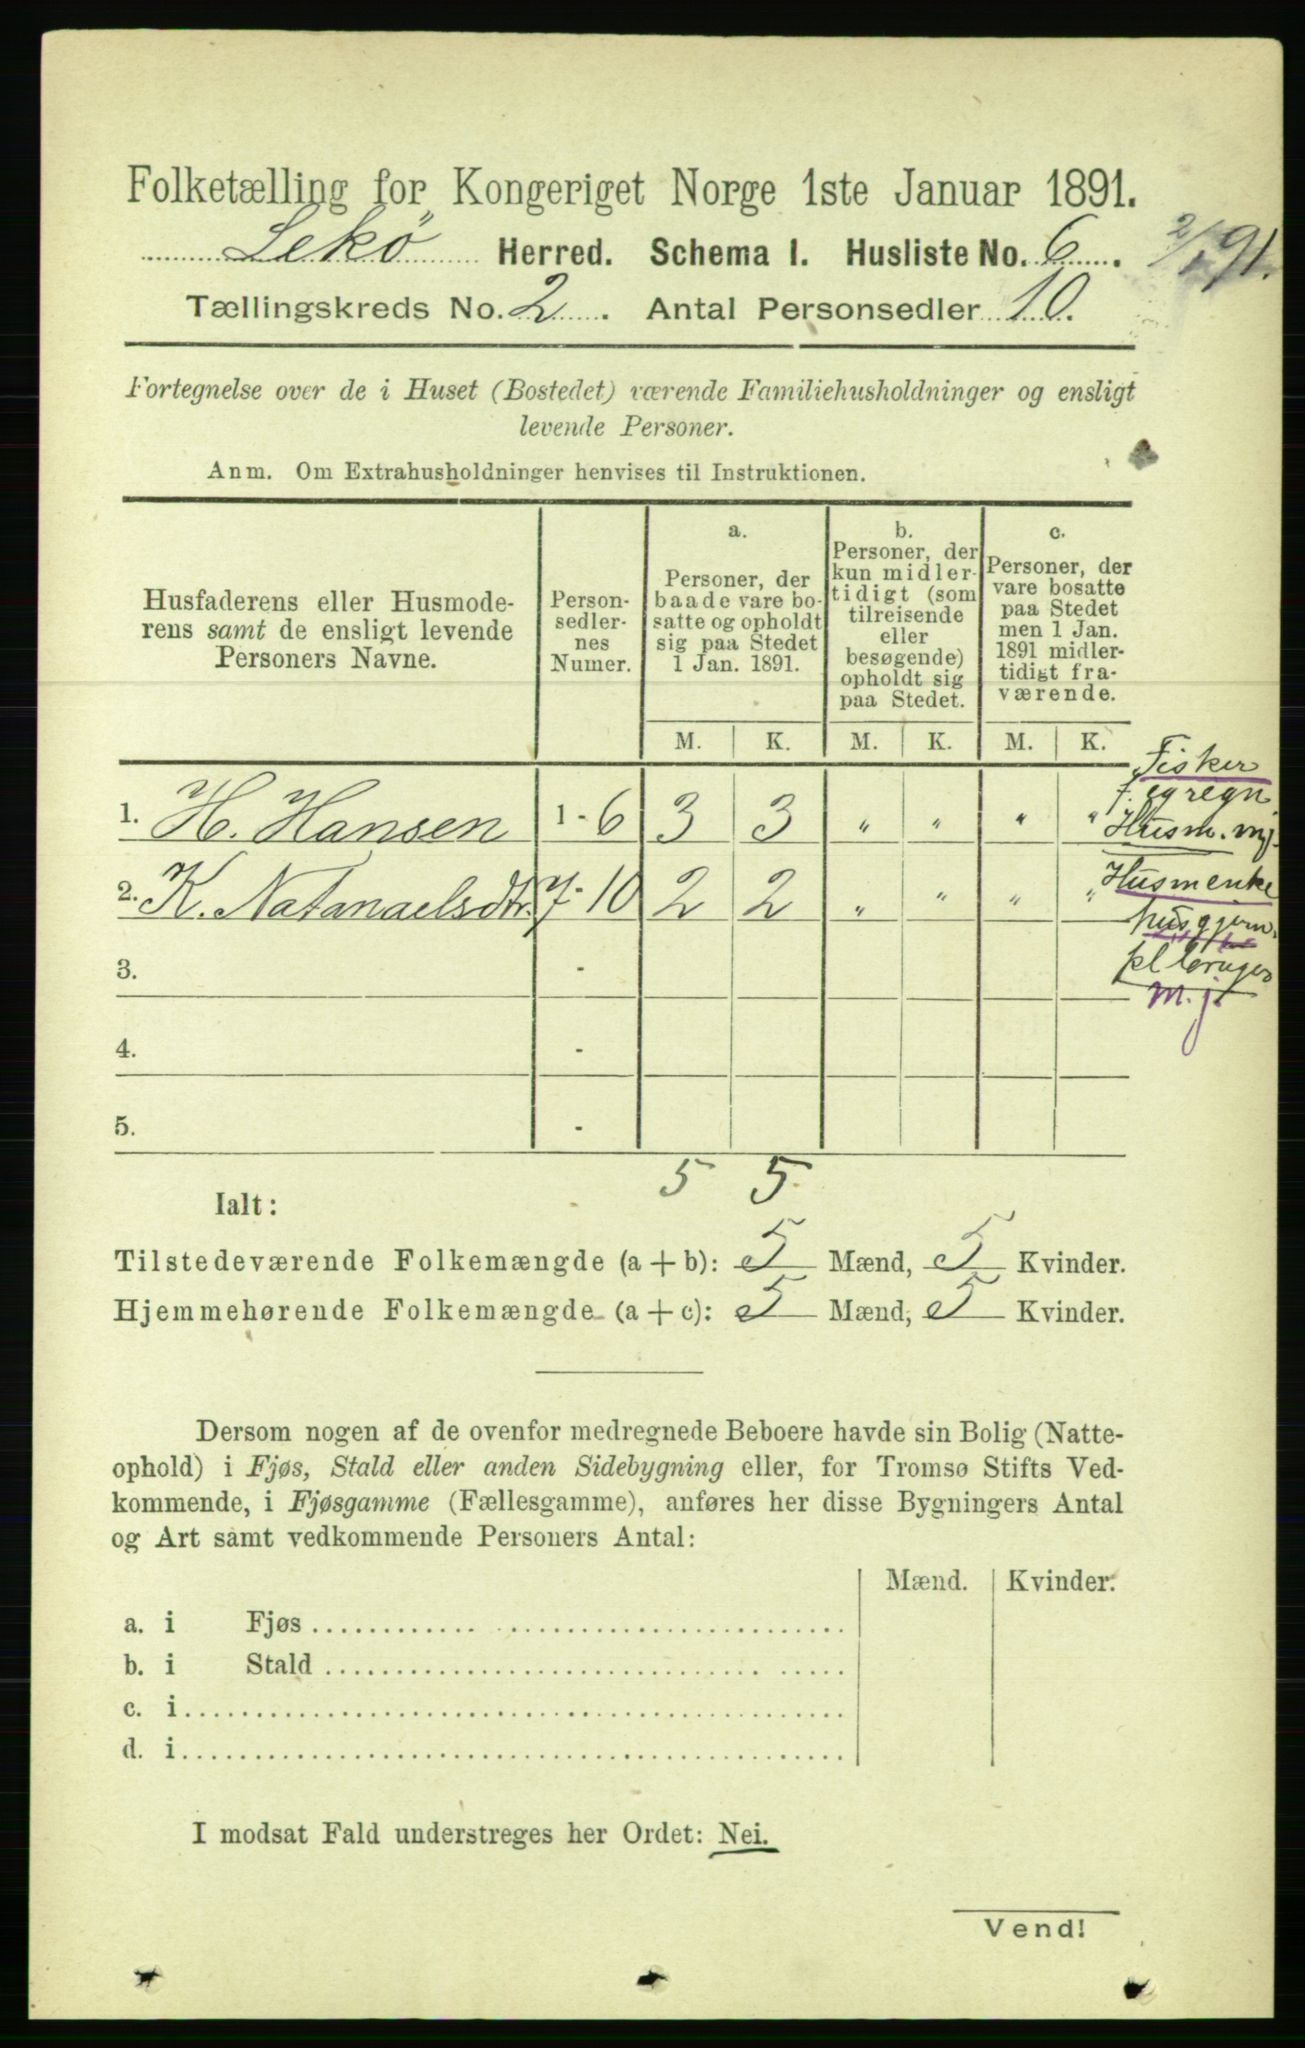 Folketælling for Kongeriget Norge 1ste Januar 1891.
Lekø Herred. Schema I. Husliste No. 6. 2/1 91.
Tællingskreds No. 2. Antal Personsedler 10.
Fortegnelse over de i Huset (Bostedet) værende Familiehusholdninger og ensligt
levende Personer.
Anm. Om Extrahusholdninger henvises til Instruktionen.
Husfaderens eller Husmode-
rens samt de ensligt levende
Personers Navne.
Person-
sedler-
nes
Numer.
a.
Personer, der
baade vare bo-
satte og opholdt
sig paa Stedet
1 Jan. 1891.
b.
Personer, der
kun midler-
tidigt (som
tilreisende
eller
besøgende)
opholdt sig
paa Stedet.
c.
Personer, der
vare bosatte
paa Stedet
men 1 Jan.
1891 midler-
tidigt fra-
værende.
M. K. M. K. M. K.
Fisker
f. eg regn.
Husm. mj.
1. H. Hansen 1-6 3 3 " " " "
Husmenke
2. K. Natanaelsdtr. 7-10 2 2 " " " "
husgjern.
m. j.
3. -
4. -
5. -
5 5.
Ialt:
Tilstedeværende Folkemængde (a + b): 5 Mænd, 5 Kvinder.
Hjemmehørende Folkemængde (a + c): 5 Mænd, 5 Kvinder.
Dersom nogen af de ovenfor medregnede Beboere havde sin Bolig (Natte-
ophold) i Fjøs, Stald eller anden Sidebygning eller, for Tromsø Stifts Ved-
kommende, i Fjøsgamme (Fællesgamme), anføres her disse Bygningers Antal
og Art samt vedkommende Personers Antal:
Mænd. Kvinder.
a. i Fjøs
b. i Stald
c. i
d. i
I modsat Fald understreges her Ordet: Nei.
Vend!